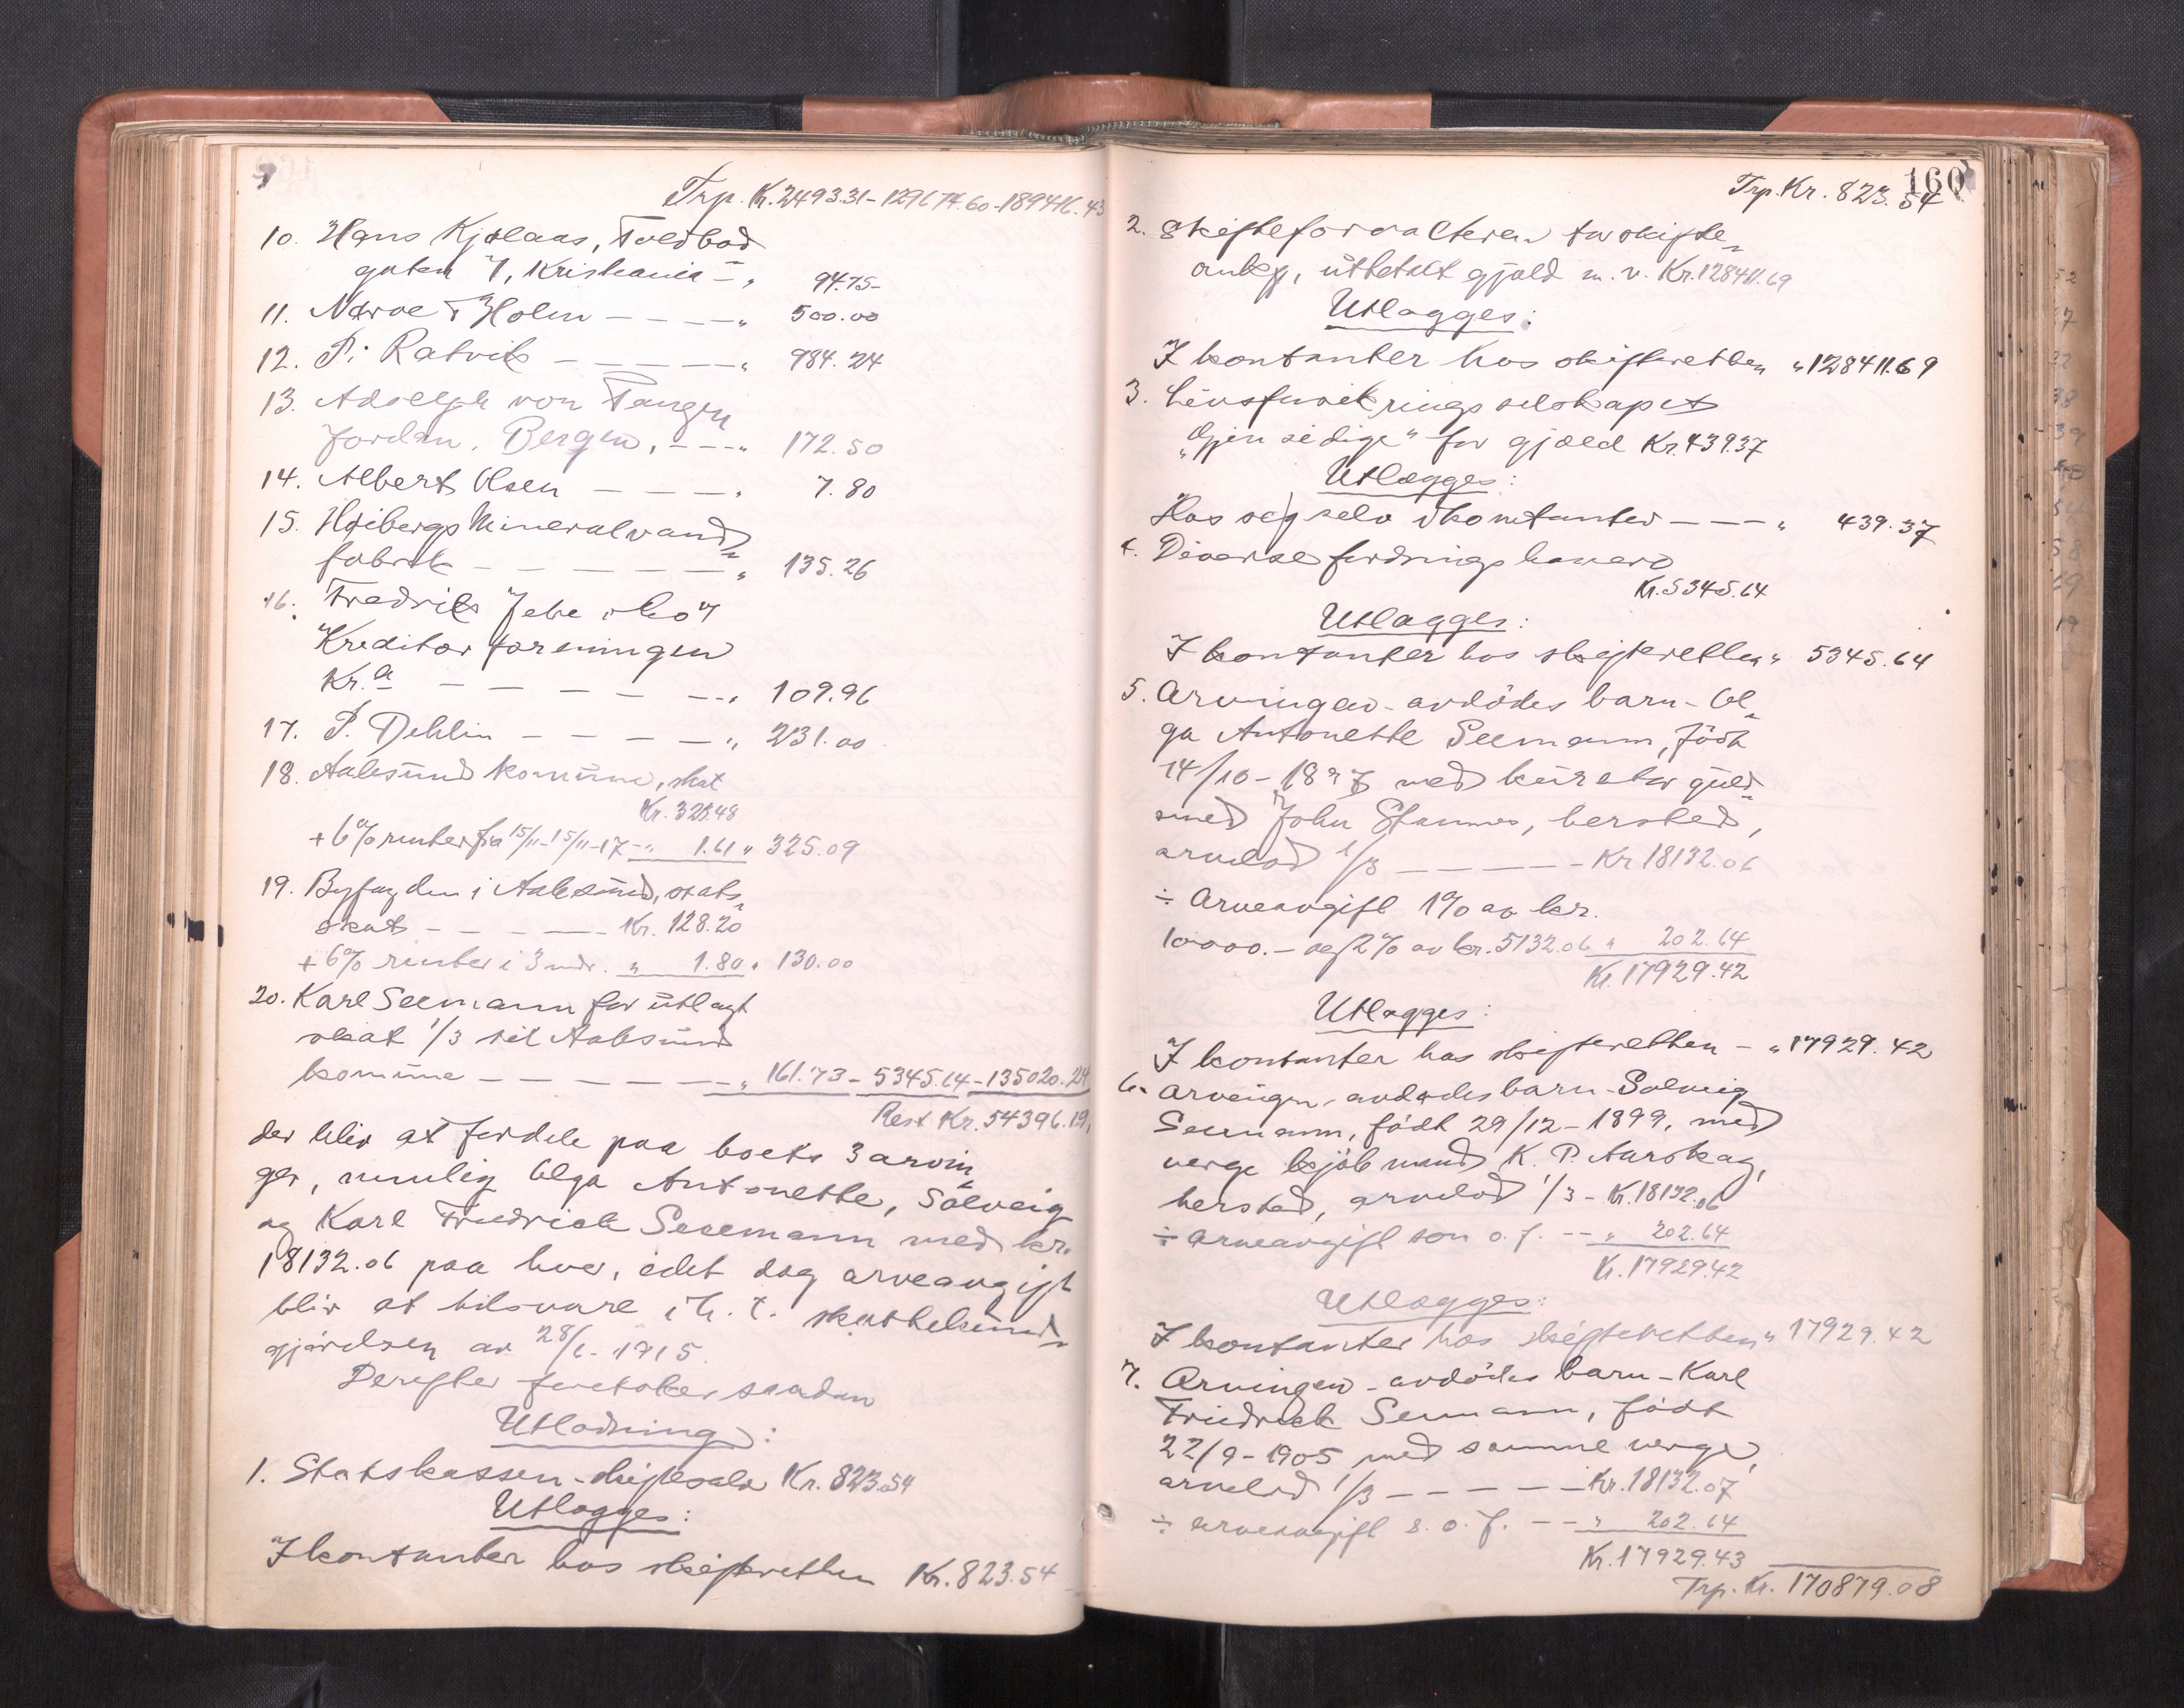 Trp. Kr. 2493.31 - 129674.60 - 189416.43
10. Hans Kjølaas, Toldbod
gaten 7, Kristiania - „ 94.75
11. Nærøe & Holm - - - - „ 500.00
12. P. Ratvik - - - - - „ 984.24
13. Adolph von Tangen
Jordan, Bergen, - - - „ 172.50
14. Albert Olsen - - - - „ 7.80
15. Høibergs Mineralvand-
fabrik - - - - - - „ 135.26
16. Fredrik Jebe
Kreditorforeningen
Kr.a - - - - - - „ 109.96
17. P. Dehlin - - - - - „ 231.00
18. Aalesund komune, skat
Kr. 323.48
+ 6% renter fra 15/11-15/11-17 - „ 1.61 „ 325.09
19. Byfogden i Aalesund, stats-
skat - - - - - Kr. 128.20
+ 6% renter i 3 mdr. „ 1.80 „ 130.00
20. Karl Seemann for utlagt
skat 1/3 til Aalesund
komune - - - - - - - „ 161.73 - 5345.64 - 135020.24
Rest Kr. 54396.19,
der blir at fordele paa boets 3 arvin-
ger, nemlig Olga Antonette, Solveig
og Karl Friedrich Seemann med kr.
18132.06 paa hver, idet dog arveavgift
blir at tilsvare i h. t. skattekund-
gjørelsen av 28/6 - 1915.
Derefter foretokes saadan
Utlodning:
1. Statskassen - skiftesalær Kr. 823.54
Utlægges:
I kontanter hos skifteretten Kr. 823.54
160
Trp. Kr. 823.54
2. Skifteforvalteren for skifte-
omkg, utbetalt gjæld m. v. Kr. 128411.69
Utlægges:
I kontanter hos skifteretten „ 128411.69
3. Livsforsikringsselskapet
„Gjensidige" for gjæld Kr. 439.37
Utlægges:
Hos sig selv i kontanter - - - „ 439.37
4. Diverse fordringshavere
Kr. 5345.64
Utlægges:
I kontanter hos skifteretten „ 5345.64
5. Arvingen - avdødes barn - Ol-
ga Antonette Seemann, født
14/10 - 1897 med kurator guld-
smed John Stamnes, hersted,
arvelod 1/3 - - - - - Kr 18132.06
÷ Arveavgift 1% av kr.
10000.- og 2% av kr. 5132.06 „ 202.64
Kr. 17929.42
Utlægges:
I kontanter hos skifteretten - „ 17929.42
6. Arvingen - avdødes barn - Solveig
Seemann, født 29/12 - 1899, med
verge kjøbmand K. P. Aurskog,
hersted, arvelod 1/3 - Kr. 18132.06
÷ Arveavgift som o. f. - - „ 202.64
Kr. 17929.42
Utlægges:
I kontanter hos skifteretten „ 17929.42
7. Arvingen - avdødes barn - Karl
Friedrick Seemann, født
22/9 - 1905 med samme verge,
arvelod 1/3 - - - - - Kr. 18132.07
÷ Arveavgift s. o. f. - - „ 202.64
Kr. 17929.43
Trp. Kr. 170879.08